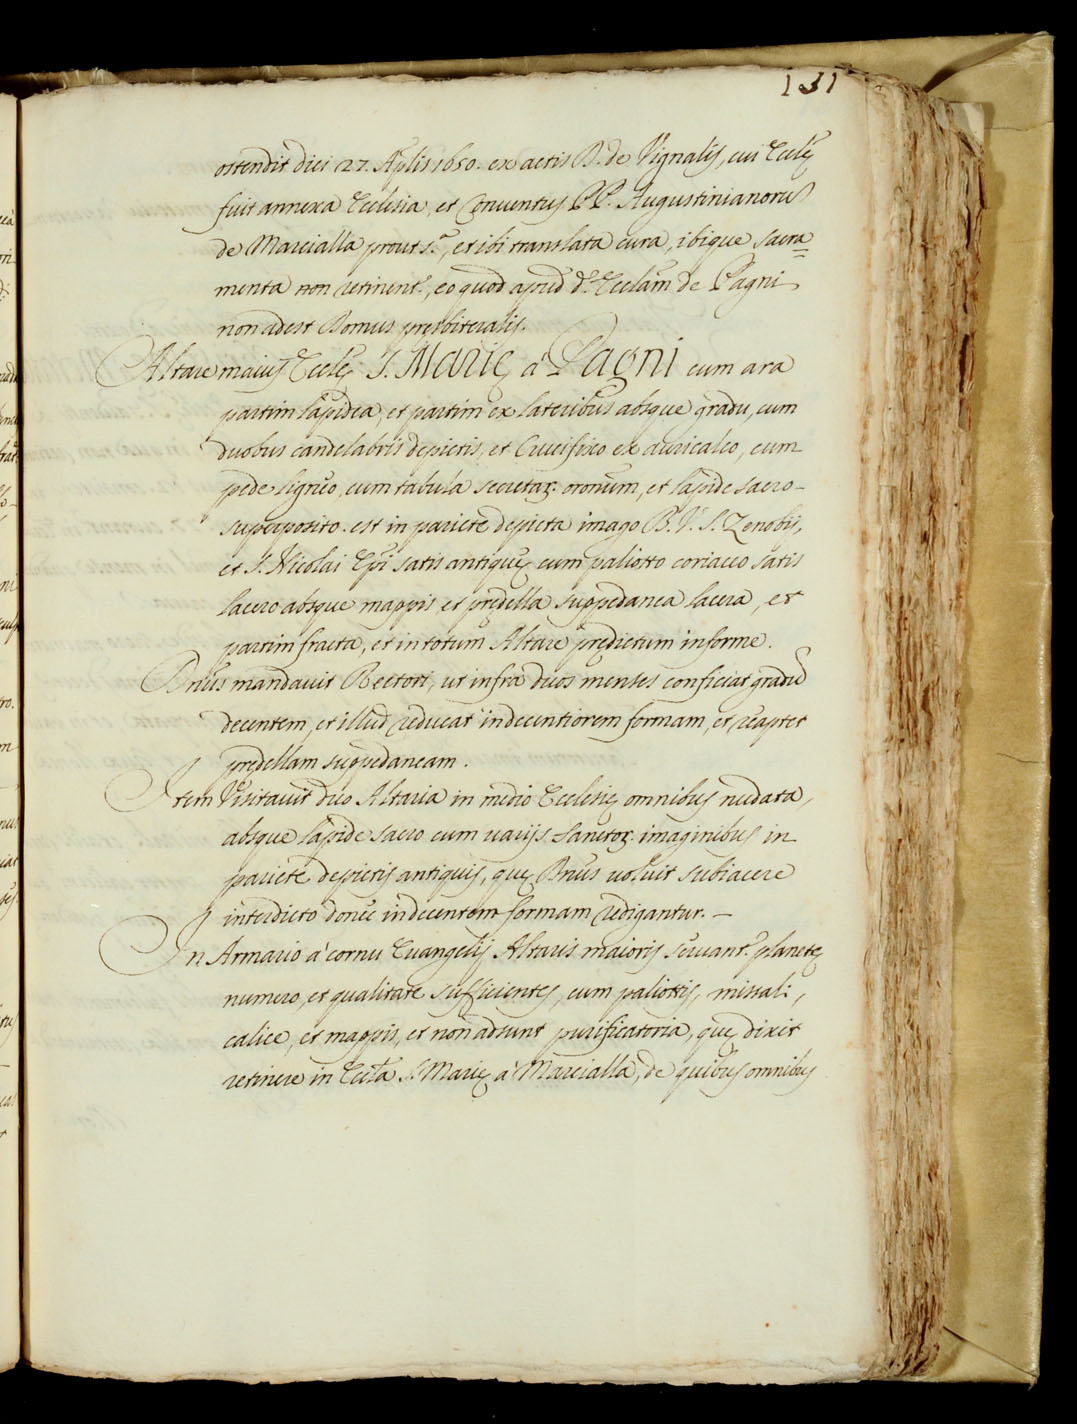 131
ostendit diei 27. Aplis 1650. ex actis D. de Vignalis, cui Eccle
fuit annexa Ecclesia, et Conventus PP. Augustinianoru
de Marcialla prout sa., et ibi translata cura, ibique sacra=
menta non retinent., eo quod apud da. Ecclam de Pagni
non adest Domus presbiteralis.
Altare maius Eccle S. Marie a Pagni cum ara
partim lapidea, et partim ex lateribus absque gradu, cum
duobus candelabris depictis, et Crucifixo ex auricalco, cum
pede ligneo, cum tabula secretar. oronum, et lapide sacro-
superposito. est in pariete depicta imago B. V. S. Zenobij,
et S. Nicolai Epi satis antique cum paliotto coriaceo satis
lacero absque mappis et predella suppedanea lacera, et
partim fracta, et in totum Altare predictum informe.
Dnus mandavit Rectori, ut infra duos menses conficiat gradu
decentem, et illud reducat indecentiorem formam, et reaptet
predellam suppedaneam.
Item Visitavit duo Altaria in medio Ecclesie omnibus nudata,
absque lapide sacro cum varijs Sanctor. imaginibus in
pariete depictis antiquis, que Dnus voluit subiacere
interdicto donec indecentem formam redigantur. -
In Armario a cornu Evangelij Altaris maioris servant. planete
numero, et qualitate sufficientes, cum paliottis, missali,
calice, et mappis, et non adsunt purificatoria, que dixit
retinere in Eccla S. Marie a Marcialla, de quibus omnibus